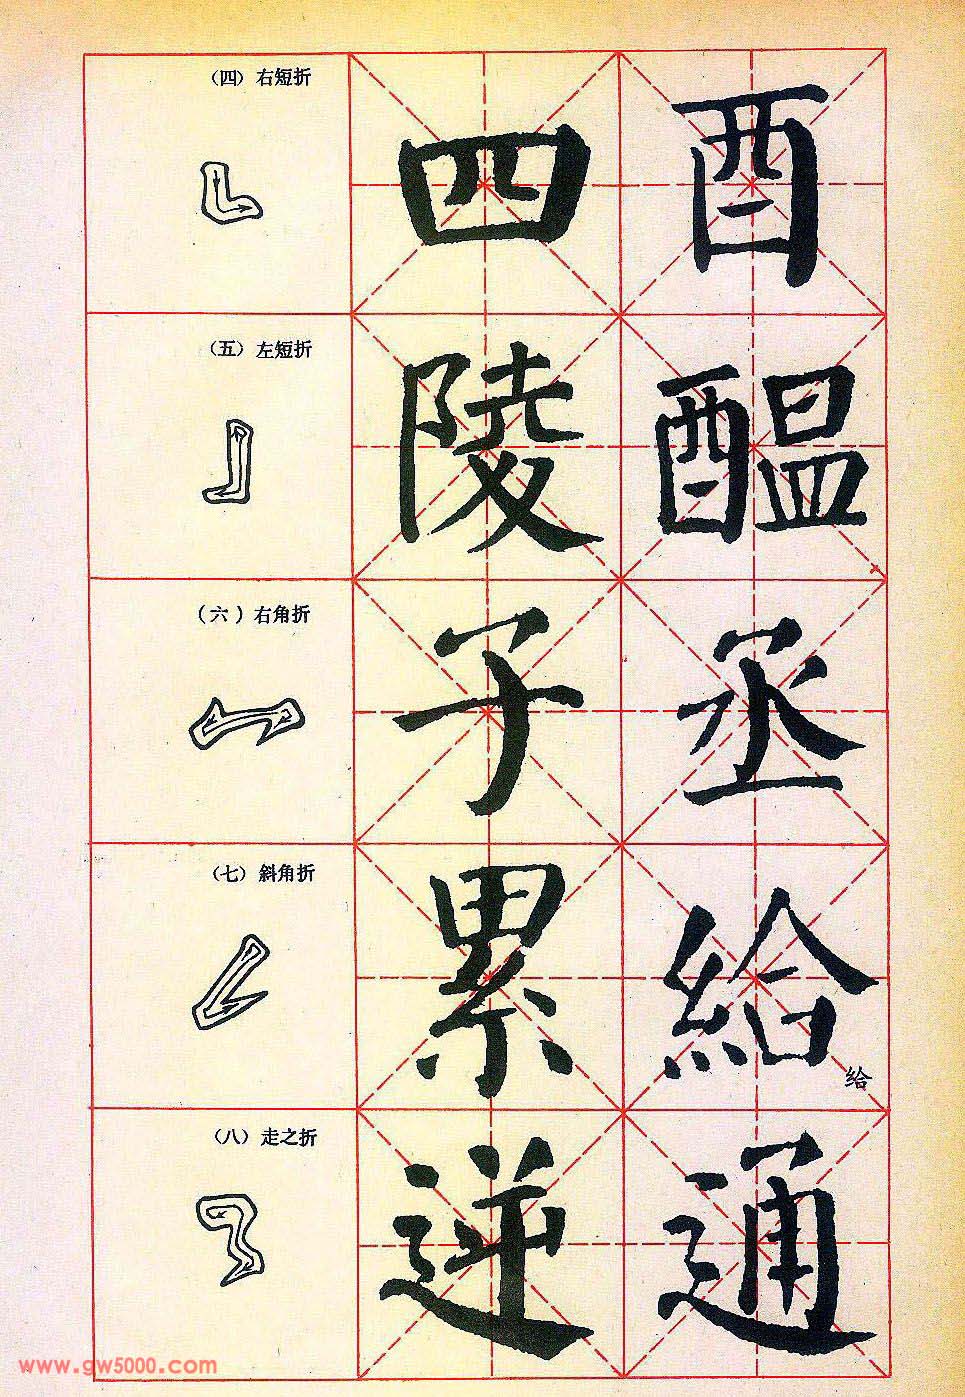 （四）右短折
四 酉
（五）左短折
陵 醖
（六）右角折
子 丞
（七）斜角折
累 給 给
（八）走之折
逆 通
www.gw5000.com